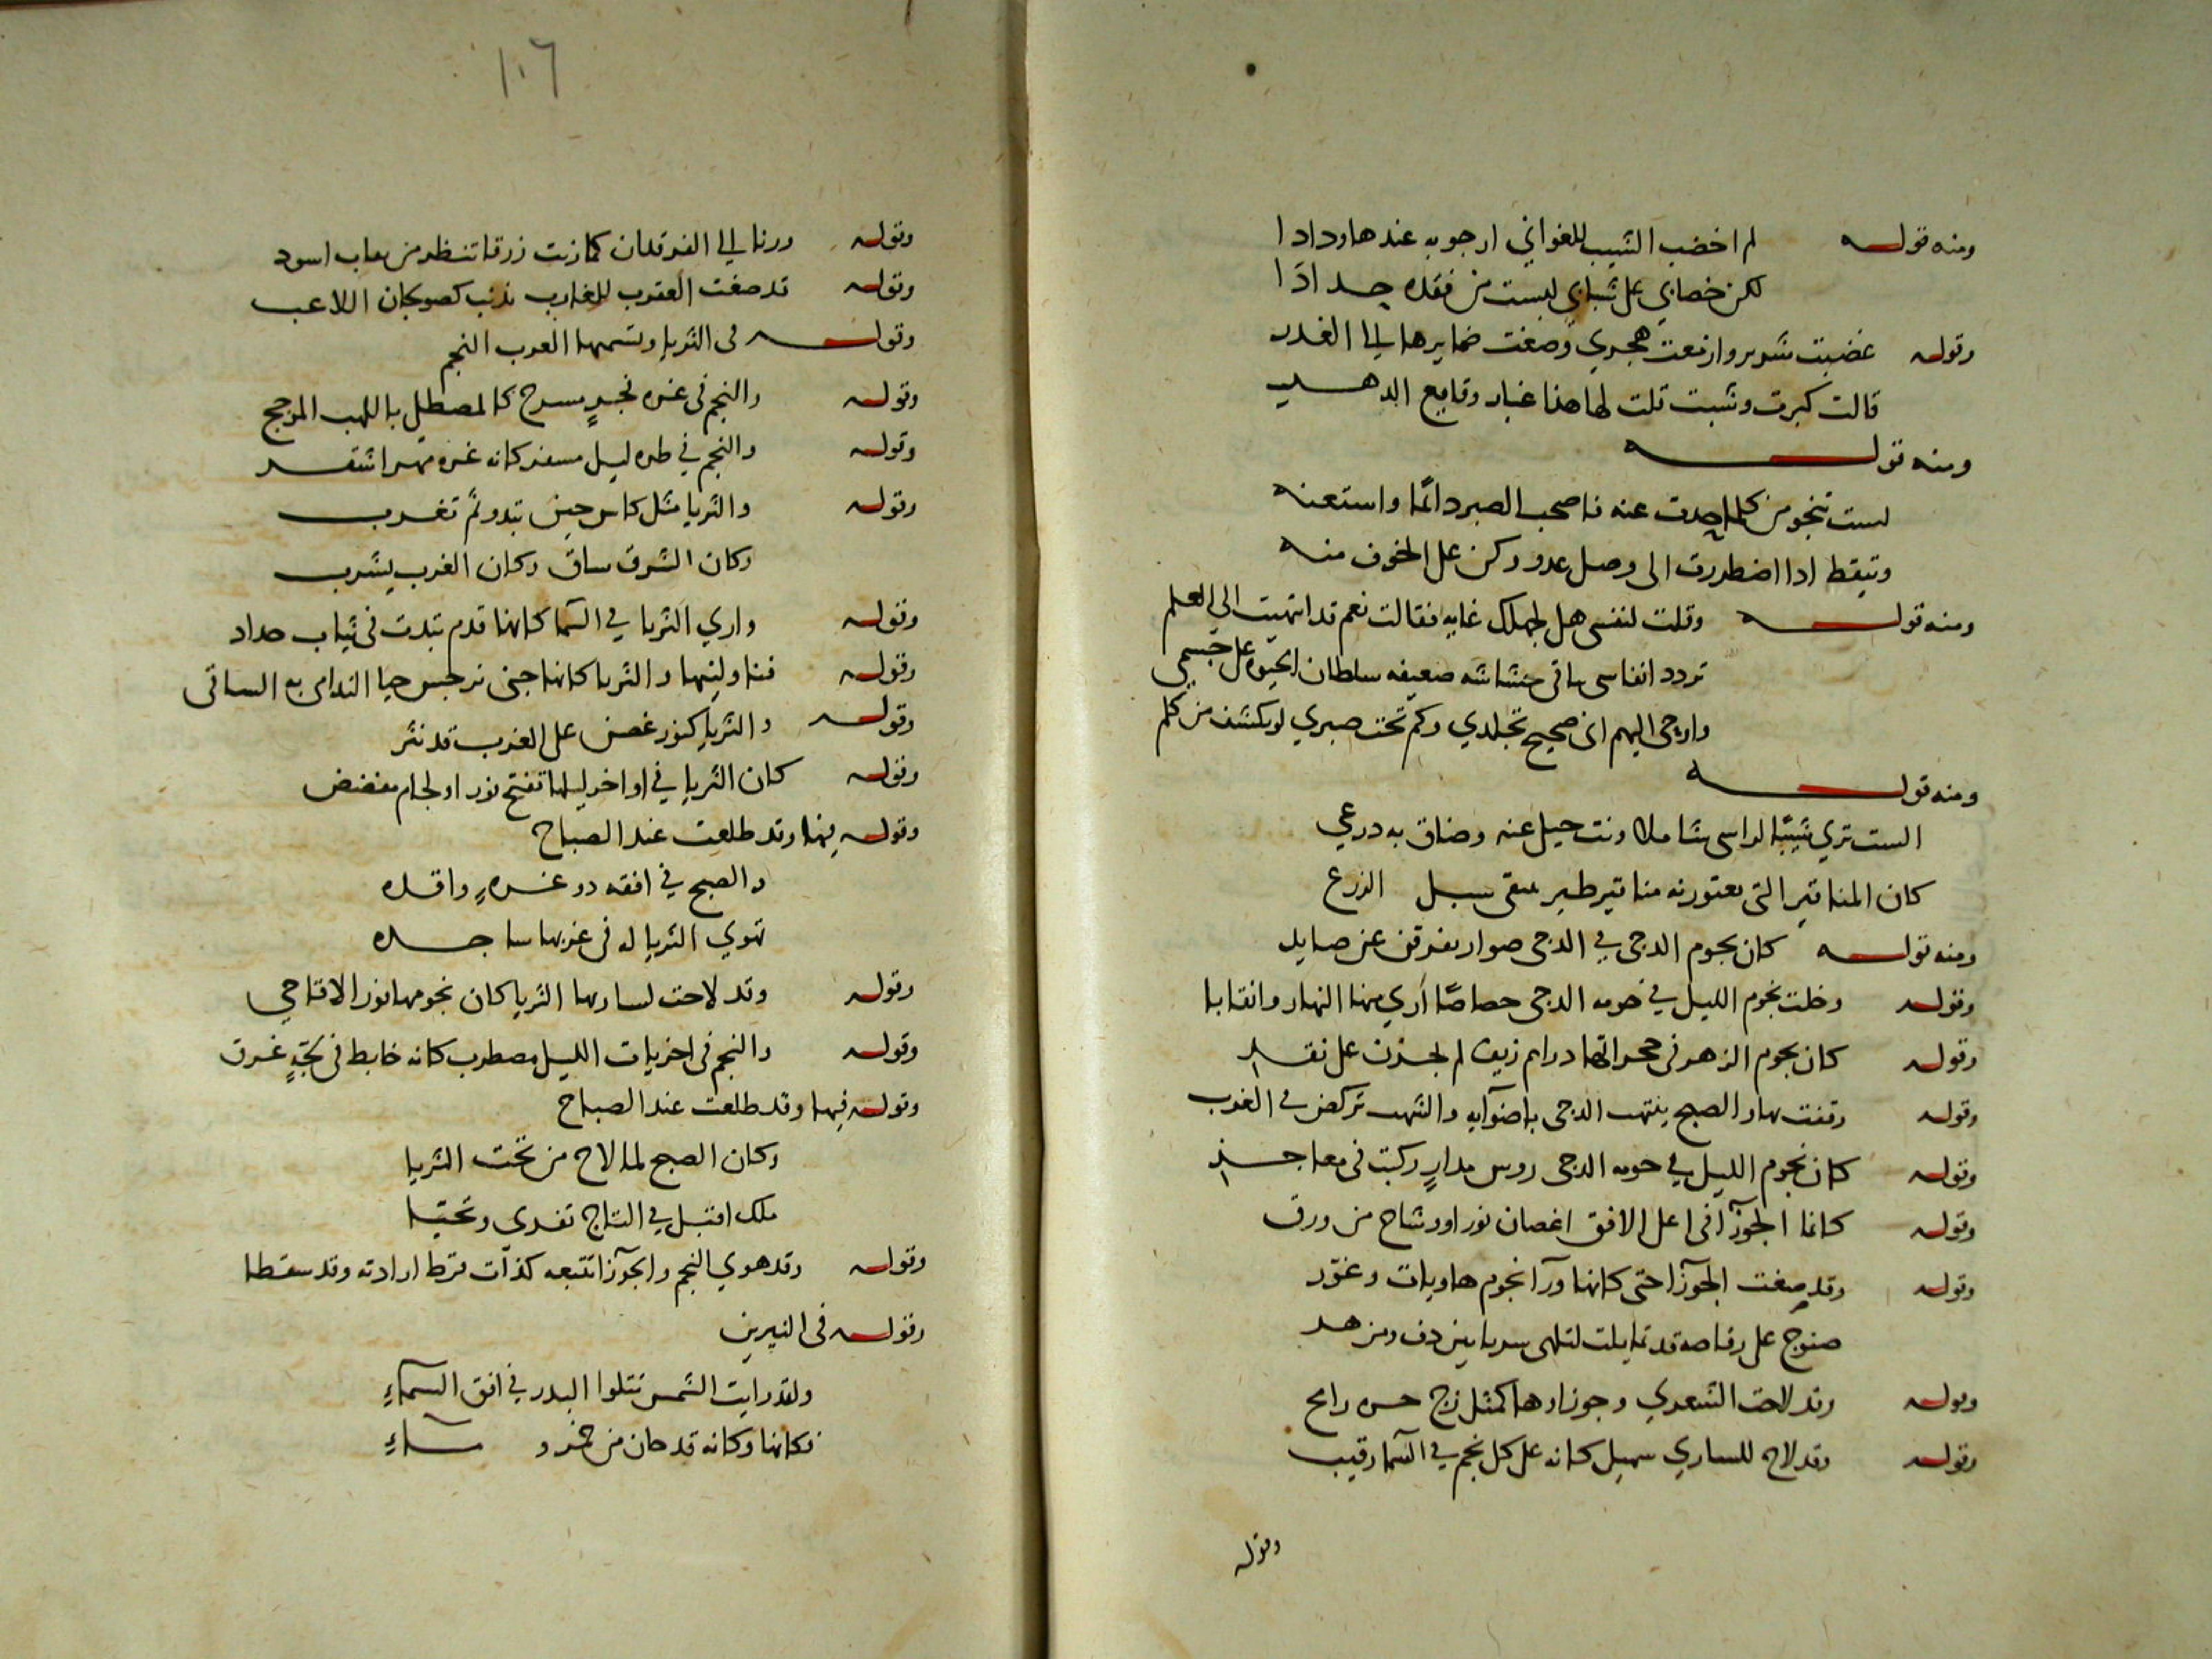 ومنه قوله لم اخضب الشيب للغواني ارجو به عندها ودادا
لكن خضابي على شبابي لبست من فقده حدادا
وقوله غضبت شرير وازمعت هجري وصغت ضمايرها الى الغدر
قالت كبرت وشبت قلت لها هذا غبار وقايع الدهر
ومنه قوله
لست تنجو من كلما حدت عنه فاصحب الصبر دائما واستعنه
وتيقظ اذا اضطررت الى وصل عدو وكن على الخوف منه
ومنه قوله وقلت لنفسي هل لجهلك غايه فقالت نعم قد انتهيت الى العلم
تردد انفاسي باقي حشاشه ضعيفه سلطان الحيوة على جسمي
وارجي اليهم اني صحيح تجلدي وكم تحت صبري لو يكشف من كلم
ومنه قوله
الست تري شيبا لراسي شاملا ونت حيلي عنه وضاق به درعي
كان المناقير التي تعتورنه مناقير طير سنبل الزرع
ومنه قوله كان نجوم الدجى في الدجى صوار يفرقن عن صايد
وقوله وخلت نجوم الليل في حومه الدجى حصاصا اري منها النهار وانقابا
وقوله كان نجوم الزهر في حجراتها دراهم زيف لم يجزن على نقد
وقوله وقفت بها والصبح ينتهب الدجى باضوآيه والشهب تركض في الغرب
وقوله كان نجوم الليل في حومه الدجى روس مدار ركبت في معاجز
وقوله كانما الجوزآ في اعلى الافق اغصان نور او وشاح من ورق
وقوله وقد صغت الجوزآ حتى كانها ورآ نجوم هاويات وغور
صنوج على رقاصه قد تمايلت لتلهي سربا بين دف ومزهر
وقوله وقد لاحت الشعري وجوزاوها كمثل زج حره رامح
وقوله وقد لاح للساري سهيل كانه على كل نجم في السما رقيب
وقوله
١٠٦
وقوله ورنا الي الفرقدان كما رنت زرقا تنظر من نقاب اسود
وقوله قد صغت العقرب للغارب بذنب كصولجان اللاعب
وقوله في الثريا وتسميها العرب النجم
وقوله والنجم في غره فجر مسرج كالمصطلي باللهب المؤجج
وقوله والنجم في طره ليل مسفر كانه غره مهر اشقر
وقوله والثريا مثل كاس حين تبدو ثم تغرب
وكان الشرق ساق وكان الغرب يشرب
وقوله واري الثريا في السما كانها قدم تبدت في ثياب حداد
وقوله فناولنيها والثريا كانها جنى نرجس حيا الندامى به الساقي
وقوله والثريا كنور غصن على الغرب قد نثر
وقوله كان الثريا في اواخر ليلها تفتح نور او لجام مفضض
وقوله فيها وقد طلعت عند الصباح
والصبح في افقه ذو غره واقده
تهوي الثريا له في غربها ساجده
وقوله وقد لاحت لساريها الثريا كان نجومها نور الاقاحي
وقوله والنجم في اخريات الليل مضطرب كانه خابط في لجة غرق
وقوله فيها وقد طلعت عند الصباح
وكان الصبح لما لاح من تحت الثريا
ملك اقبل في التاج تفدى وتحيا
وقوله وقد هوي النجم والجوزآ تتبعه كذات قرط ارادته وقد سقطا
وقوله في النيرين
ولقد رايت الشمس تتلوا البدر في افق السمآء
فكانها وكانه قدحان من خمر و مآء